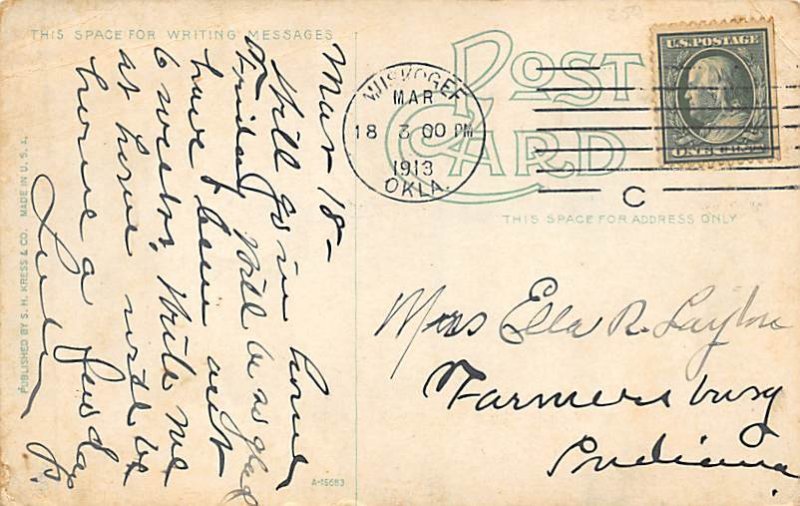 THIS SPACE FOR WRITING MESSAGES
POST
CARD
THIS SPACE FOR ADDRESS ONLY
MUSKOGEE
MAR
18 3 00 PM
1913
OKLA.
C
U.S. POSTAGE
ONE CENT
Mar 18 –
Will go in home
Friday. Will be so glad
have been out
6 weeks. Write me
at home will be
home a few days.
PUBLISHED BY S. H. KRESS & CO. MADE IN U. S. A.
A-15683
Miss Ella R. Layton
Farmersburg
Indiana